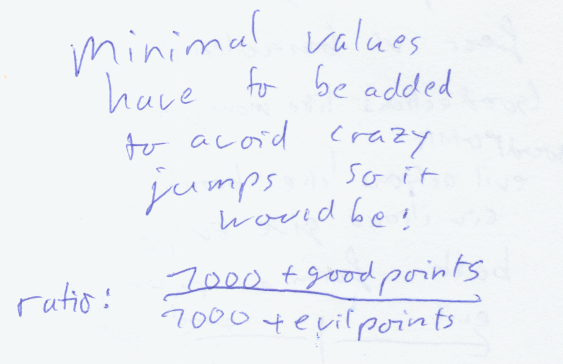 minimal values
have to be added
to avoid crazy
jumps so it
would be:
ratio: 1000 + good points
1000 + evil points